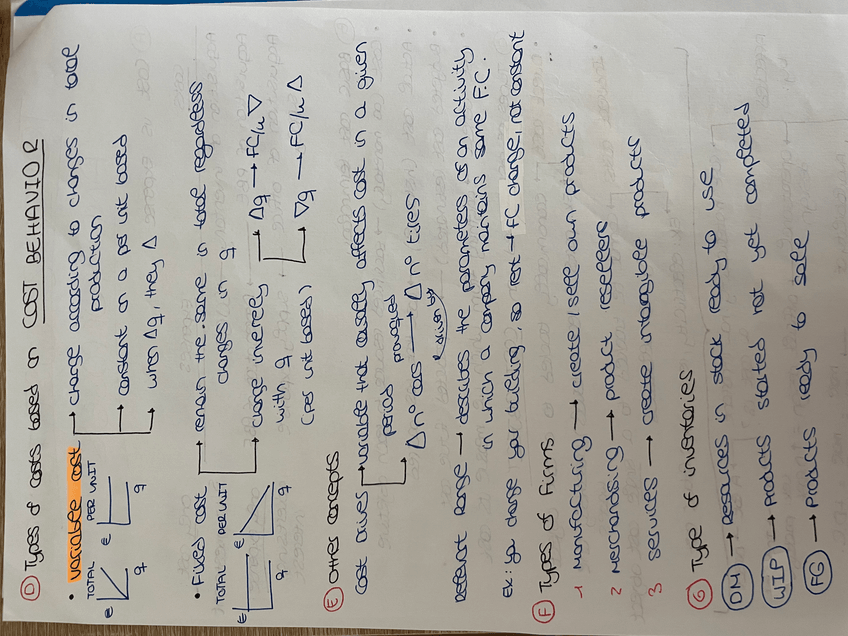 D Types of costs based on COST BEHAVIOR
• variable cost → change according to changes in total
production
→ constant on a per unit based
→ when Δq, they Δ
TOTAL PER UNIT
€ q € q
• Fixed cost → remain the same in total regardless
changes in q
→ change inversely Δq → FC/u ∇
with q ∇q → FC/u Δ
(per unit based)
TOTAL PER UNIT
€ q
E other concepts
cost driver → variable that causally affects cost in a given
period
Δ n° cars → Δ n° tires
Relevant Range → describes the parameters of an activity
in which a company maintains same FC.
Ex: you change your building, so rent → FC change, not constant
F Types of Firms
1 Manufacturing → create / sell own products
2 Merchandising → product resellers
3 services → create intangible products
G Type of inventories
DM → Resources in stock ready to use
WIP → Products started not yet completed
FG → Products ready to sale